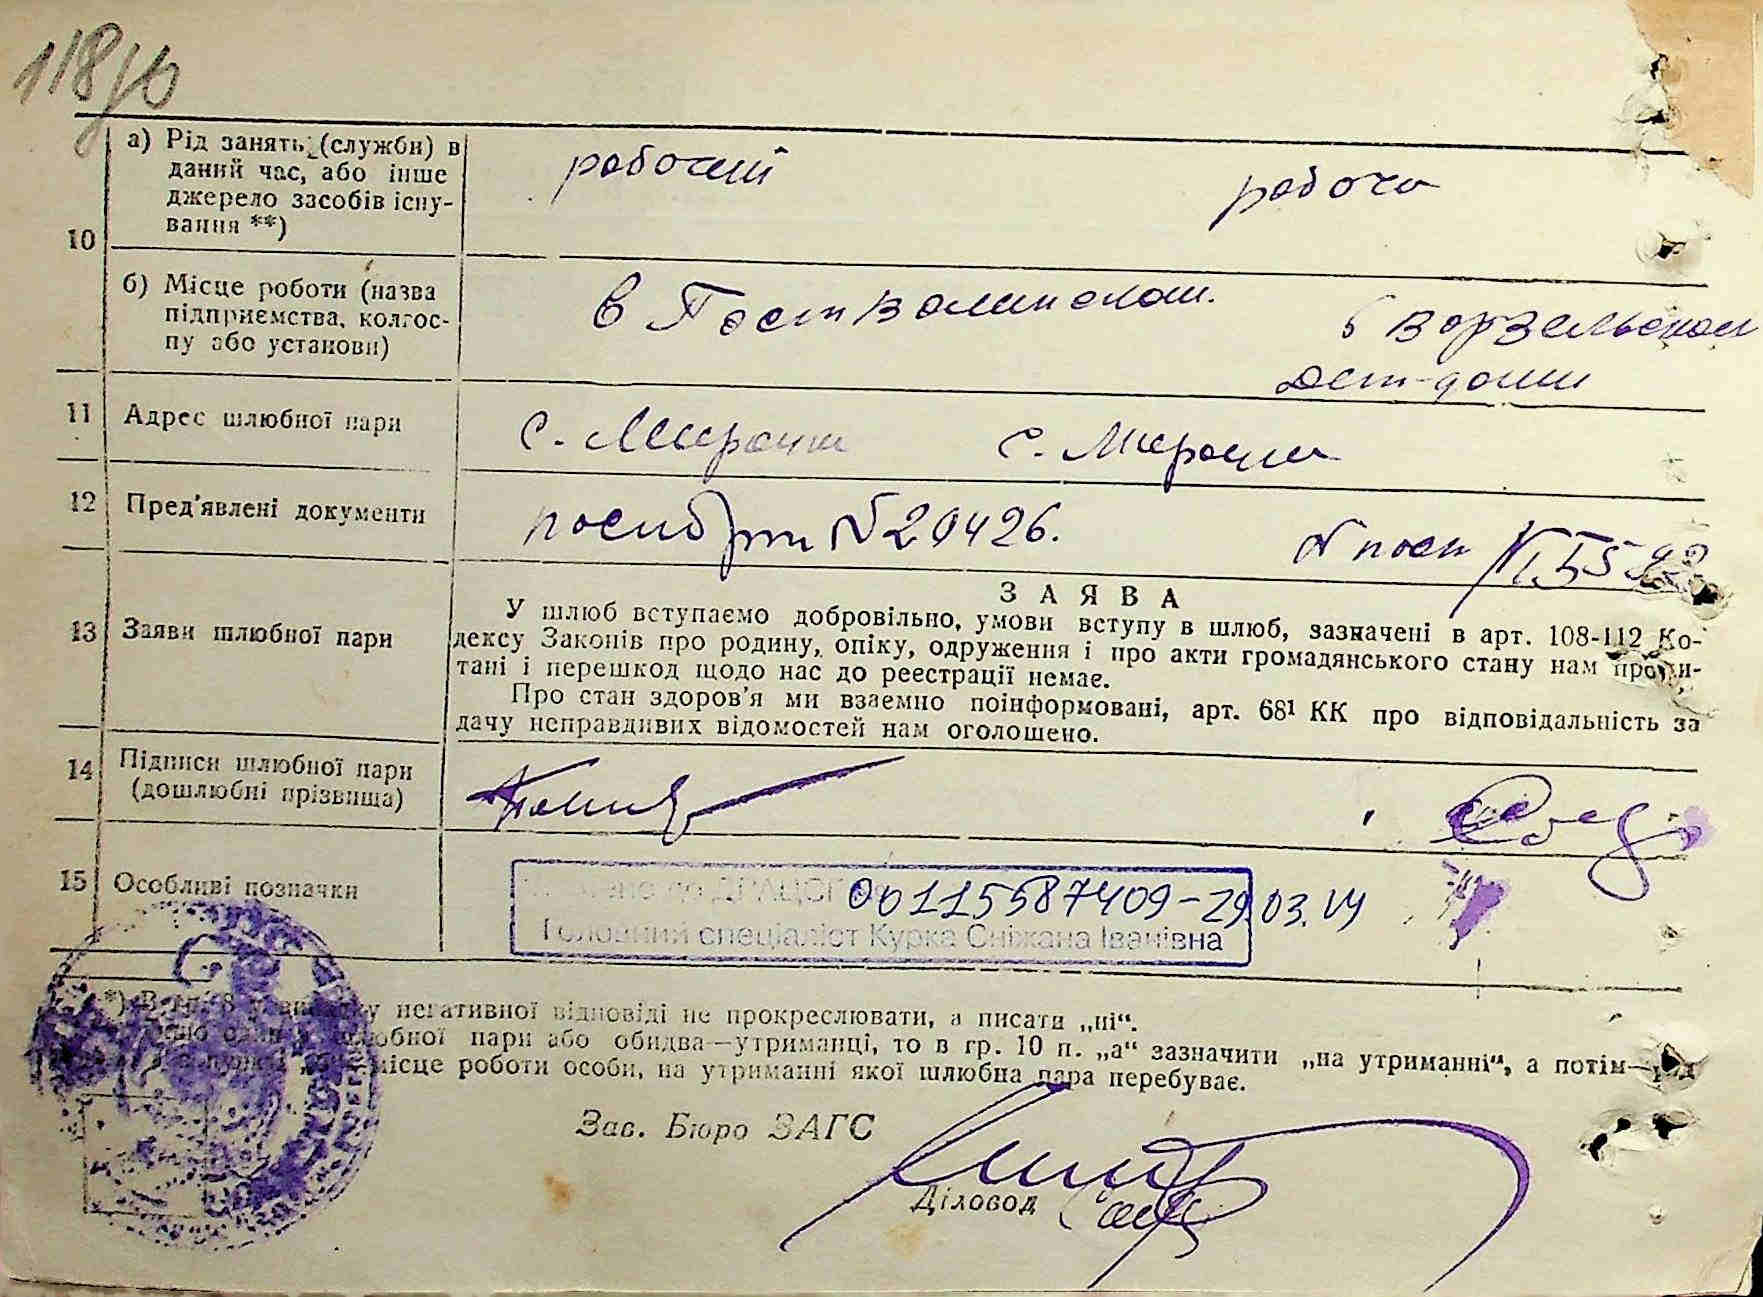 118/10
10
а) Рід занять (служби) в
даний час, або інше
джерело засобів існу-
вання **)
рабочий
рабочи
б) Місце роботи (назва
підприємства, колгос-
пу або установи)
в Пост Валинском.
в Ворзельском
дет-доми
11 Адрес шлюбної пари
с. Мироцки с. Мироцки
12 Пред'явлені документи
№20426.
13 Заяви шлюбної пари
ЗАЯВА
У шлюб вступаємо добровільно, умови вступу в шлюб, зазначені в арт. 108-112 Ко-
дексу Законів про родину, опіку, одруження і про акти громадянського стану нам прочи-
тані і перешкод щодо нас до реєстрації немає.
Про стан здоров'я ми взаємно поінформовані, арт. 68¹ КК про відповідальність за
дачу неправдивих відомостей нам оголошено.
14 Підписи шлюбної пари
(дошлюбні прізвища)
15 Особливі позначки
до ДРАЦСГ 00115587409-29.03.14
Головний спеціаліст Курка Сніжана Іванівна
негативної відповіді не прокреслювати, а писати „ні“.
шлюбної пари або обидва—утриманці, то в гр. 10 п. „а“ зазначити „на утриманні“, а потім—рід
місце роботи особи, на утриманні якої шлюбна пара перебуває.
Зав. Бюро ЗАГС
Діловод